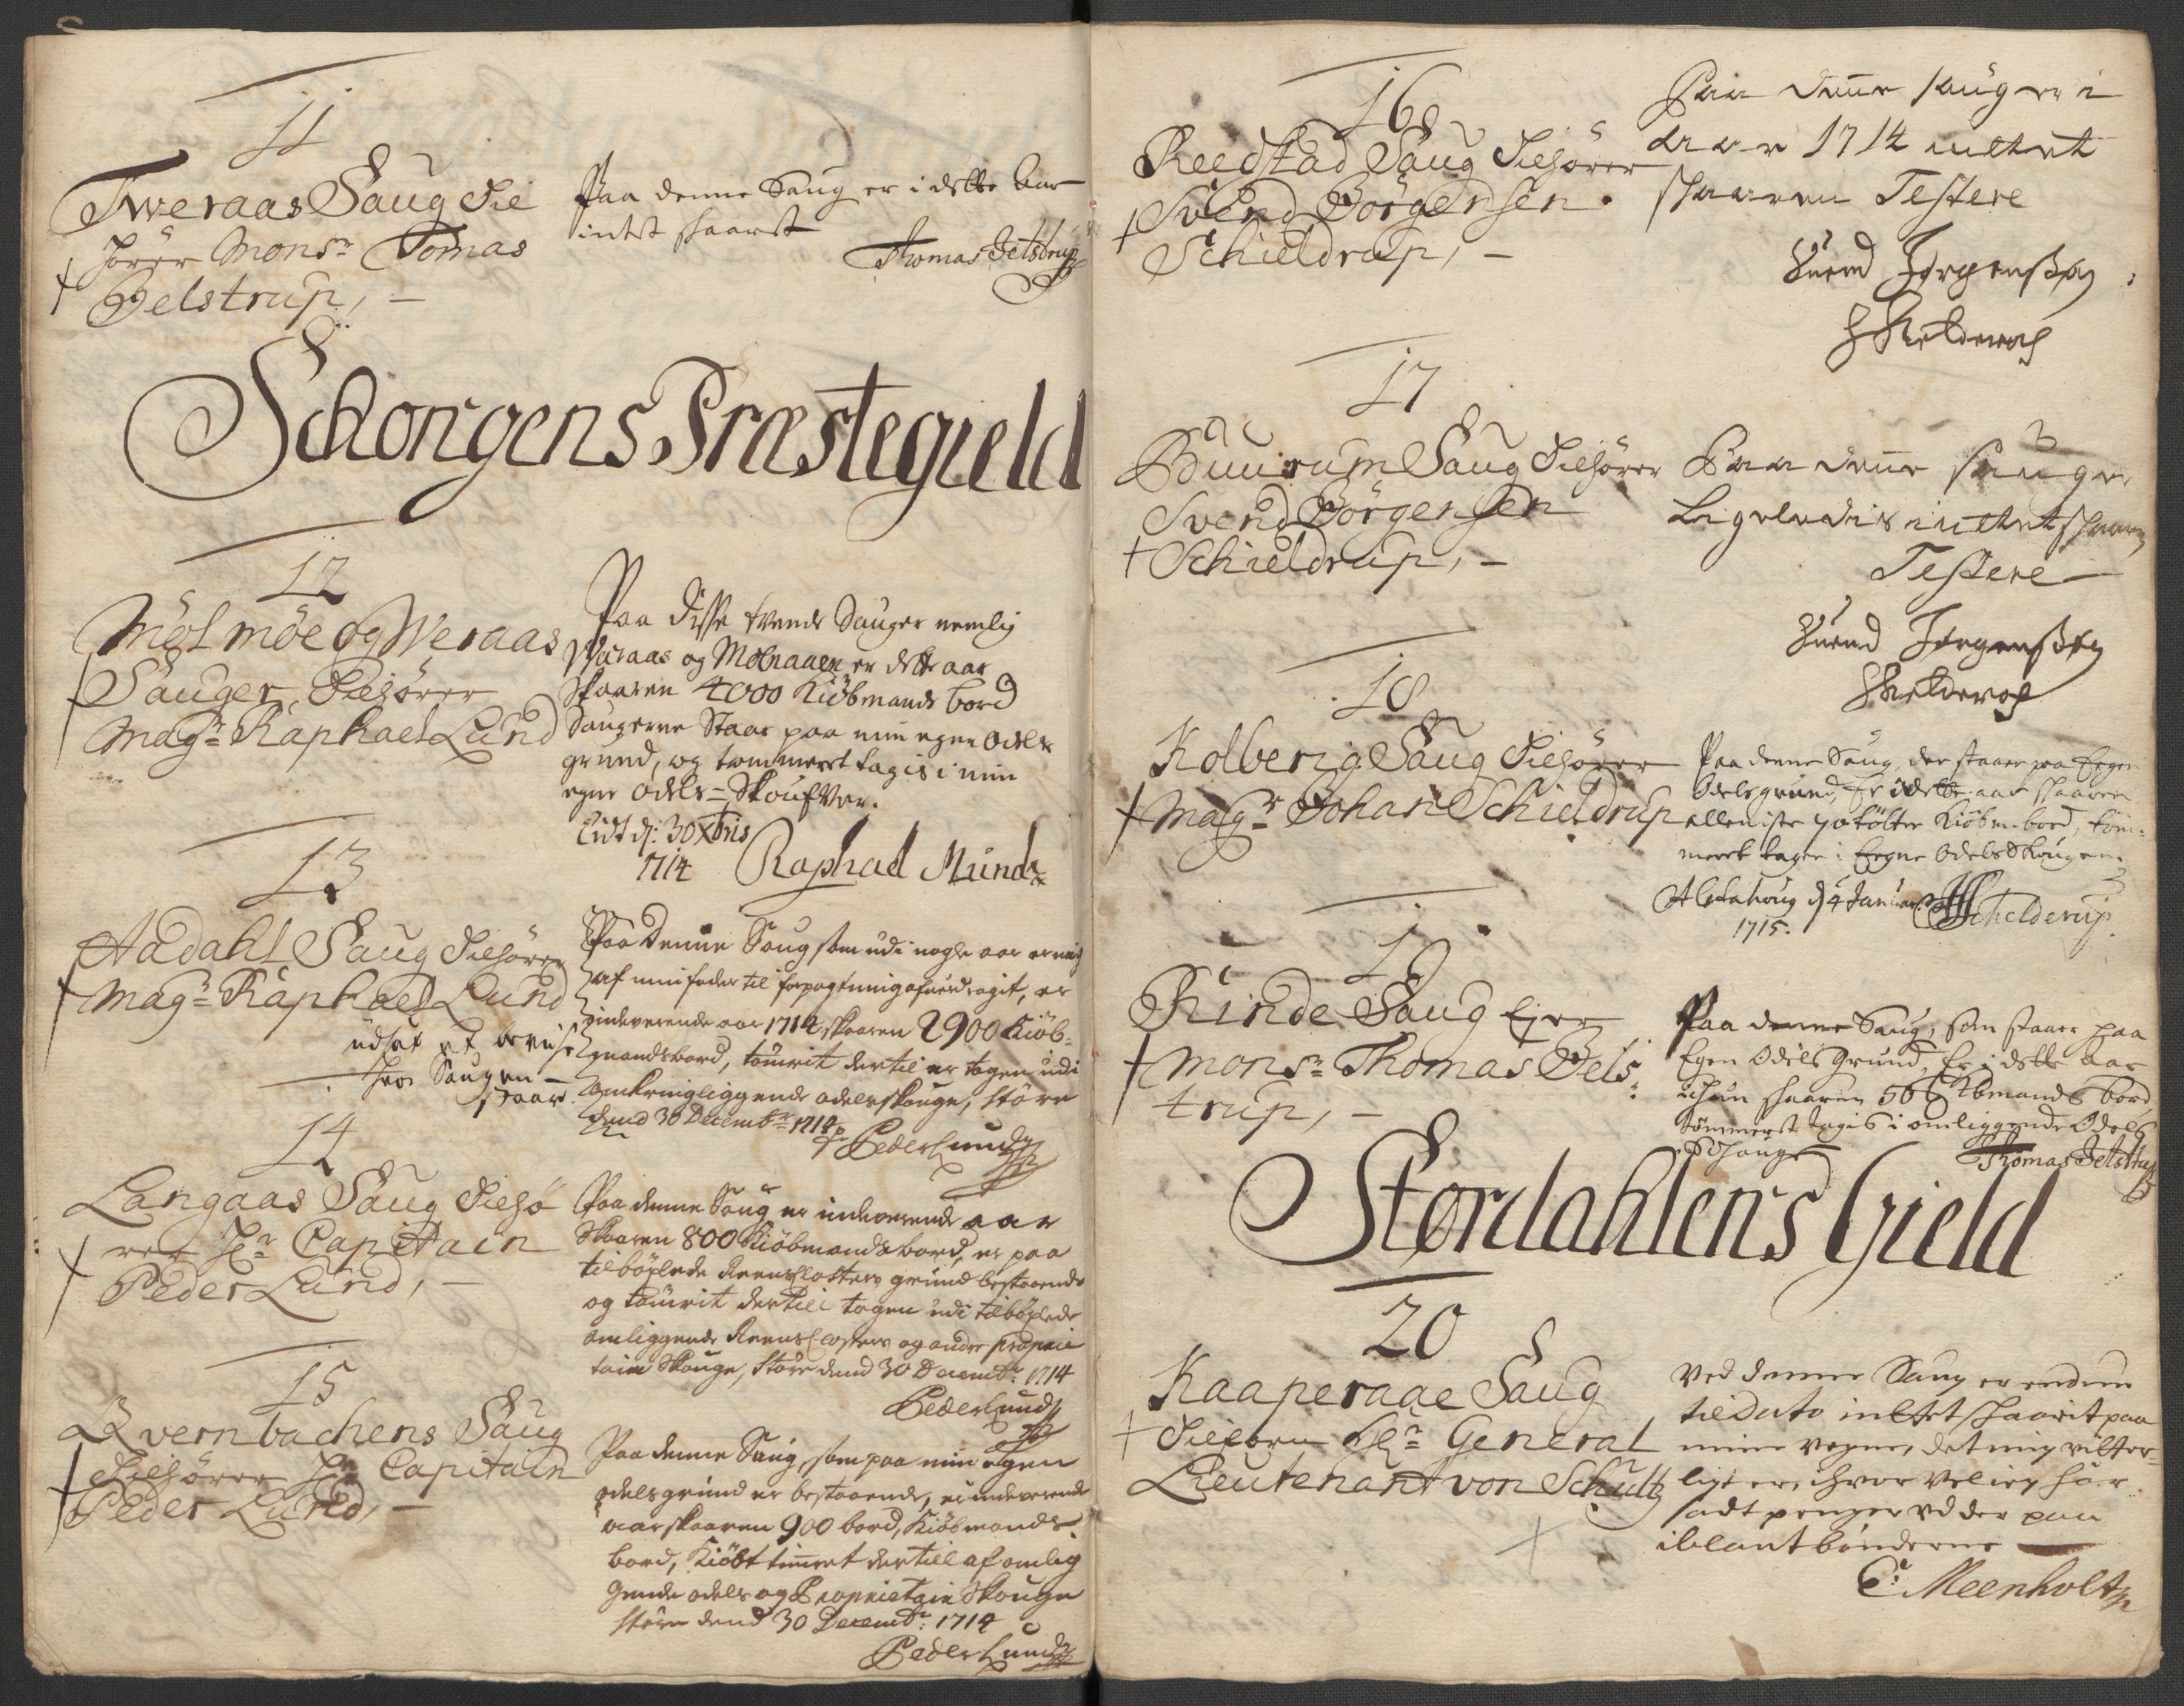 11
Tweraas Saug Til
hörer Monsr Tomas
Jelstrup, —
Paa denne Saug er i dette Aar
intet skaaret
Thomas Jelstrup
Schongens Præstegield
12
Mölmöe og Weraas
Sauger, Tilhører
Magr Raphael Lund
Paa disse tvende Sauger nemlig
Waraas og Mölnaaen er dette aar
Skaaren 4000 Kiöbmands bord
Saugerne Staar paa min egen odels
grund, og tømmeret tagis i min
egne odels=Skouf
Lidt d: 30 Xbris
1714 Raphael Munch
13
Aadahl Saug Tilhører
Magr Raphael Lund
udsat et bevise
hvor Saugen —
staar.
Paa Denne Saug som udi nogle aar er mig
af min fader til forpagtning ofuerdragit, er
indeverende aar 1714 skaaren 2900 Kiöb-
mandsbord, tömrit dertil er tagen udi
omkringliggende odelsskouge, Störe
dend 30 Decembr 1714
Peder Lund
14
Langaas Saug Tilhö
rer Hr Capitain
Peder Lund, —
Paa denne Saug er indeverende aar
Skaaren 800 Kiöbmandsbord, er paa
tilböxlede Reensclosters grund bestaaende
og tömrit dertil tagen udi tilböxlede
omliggende Reensclosters og andre proprie
tair Skouge, Störe dend 30 Decembr: 1714
Peder Lund
15
Qvernbachens Saug
Tilhörer Hr Capitain
Peder Lund, —
Paa denne Saug, som paa min egen
odelsgrund er bestaaende, er indeverende
aar skaaren 900 bord, Kiöbmands
bord, Kiöbt timret dertill af omlig
gende odels og Proprietair Skouge
Störe dend 30 Decembr: 1714
Peder Lund
16
Reedstad Saug Tilhører
Svend Jörgensen
Schieldrup, —
Paa denne saug er i
aar 1714 intet
skaaren Testere
Suend Jørgenßøn
Schelderup
17
Buurum Saug Tilhører
Svend Jörgensen
Schieldrup, —
Paa denne saug er
Ligeledis intet skaaren
Testere —
Suend Jørgenßøn
Schelderup
18
Kolberig Saug Tilhører
Magr Johan Schieldrup
Paa denne Saug, der staaer paa Egen
Odelsgrund, Er i dette aar skaaren
alleniste 70 tölter Kiöbm. bord, töm-
meret tagen i Eegne Odels Skougen.
Alstahoug d 4 Januar.
1715. Schelderup.
19
Rinde Saug Ejer
Monsr Thomas Jels-
trup, —
Paa denne Saug, som staaer paa
Egen Odels Grund, Er i dette Aar
ichun skaaren Kbmands bord
tömmeret tagis i omliggende Odels
Schouge
Thomas Jelstrup
Størdahlens Gield
20
Kaaperaae Saug
Tilhören Hr General
Lieutenant von Schultz
Ved denne Saug er endnu
til Dato intet skaarit paa
mine vegne, det mig vitter-
ligt er, ihvor vel ieg har
sadt penger ud der paa
iblant bönderne —
C: Meenholt